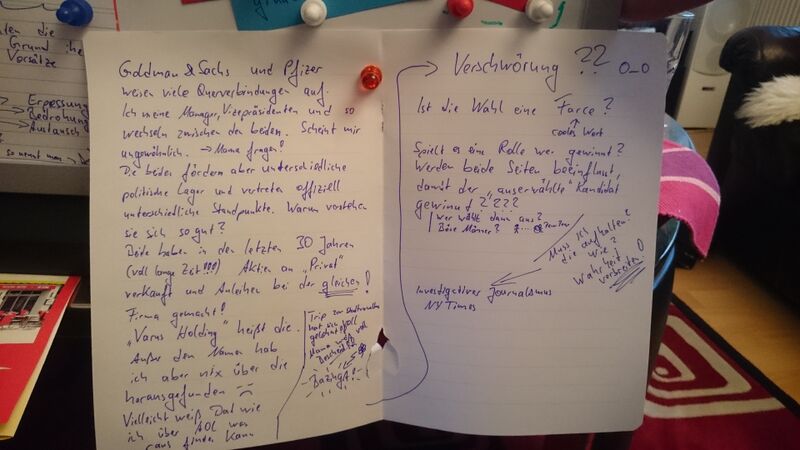 Grund
Vorsätze
Erpessung
Bedrohung
Austausch
Goldman & Sachs und Pfizer
weisen viele Querverbindungen auf.
Ich meine Manager, Vizepräsidenten und so
wechseln zwischen den beiden. Scheint mir
ungewöhnlich. → Mama fragen!
Die beiden fördern aber unterschiedliche
politische Lager und vertreten offiziell
unterschiedliche Standpunkte. Warum verstehen
sie sich so gut?
Beide haben in den letzten 30 Jahren
(voll lange Zeit!!!) Aktien an „Privat"
verkauft und Anleihen bei der gleichen!
Firma gemacht!
„Varus Holding" heißt die.
Außer den Namen hab
ich aber nix über die
herausgefunden
Vielleicht weiß Dad wie
ich über AOL was
raus finden kann
Trip zur
hat sich
gelohnt
Mama weiß voll
Bescheid
Bazinga!
Verschwörung ?? O_O
Ist die Wahl eine Farce?
cooles Wort
Spielt es eine Rolle wer gewinnt?
Werden beide Seiten beeinflusst,
damit der „auserwählte" Kandidat
gewinnt ????
Wer wählt dann aus?
Böse Männer?
Muss ich
die aufhalten?
wie?
Wahrheit
verbreiten!
Investigativer Journalismus
NY Times